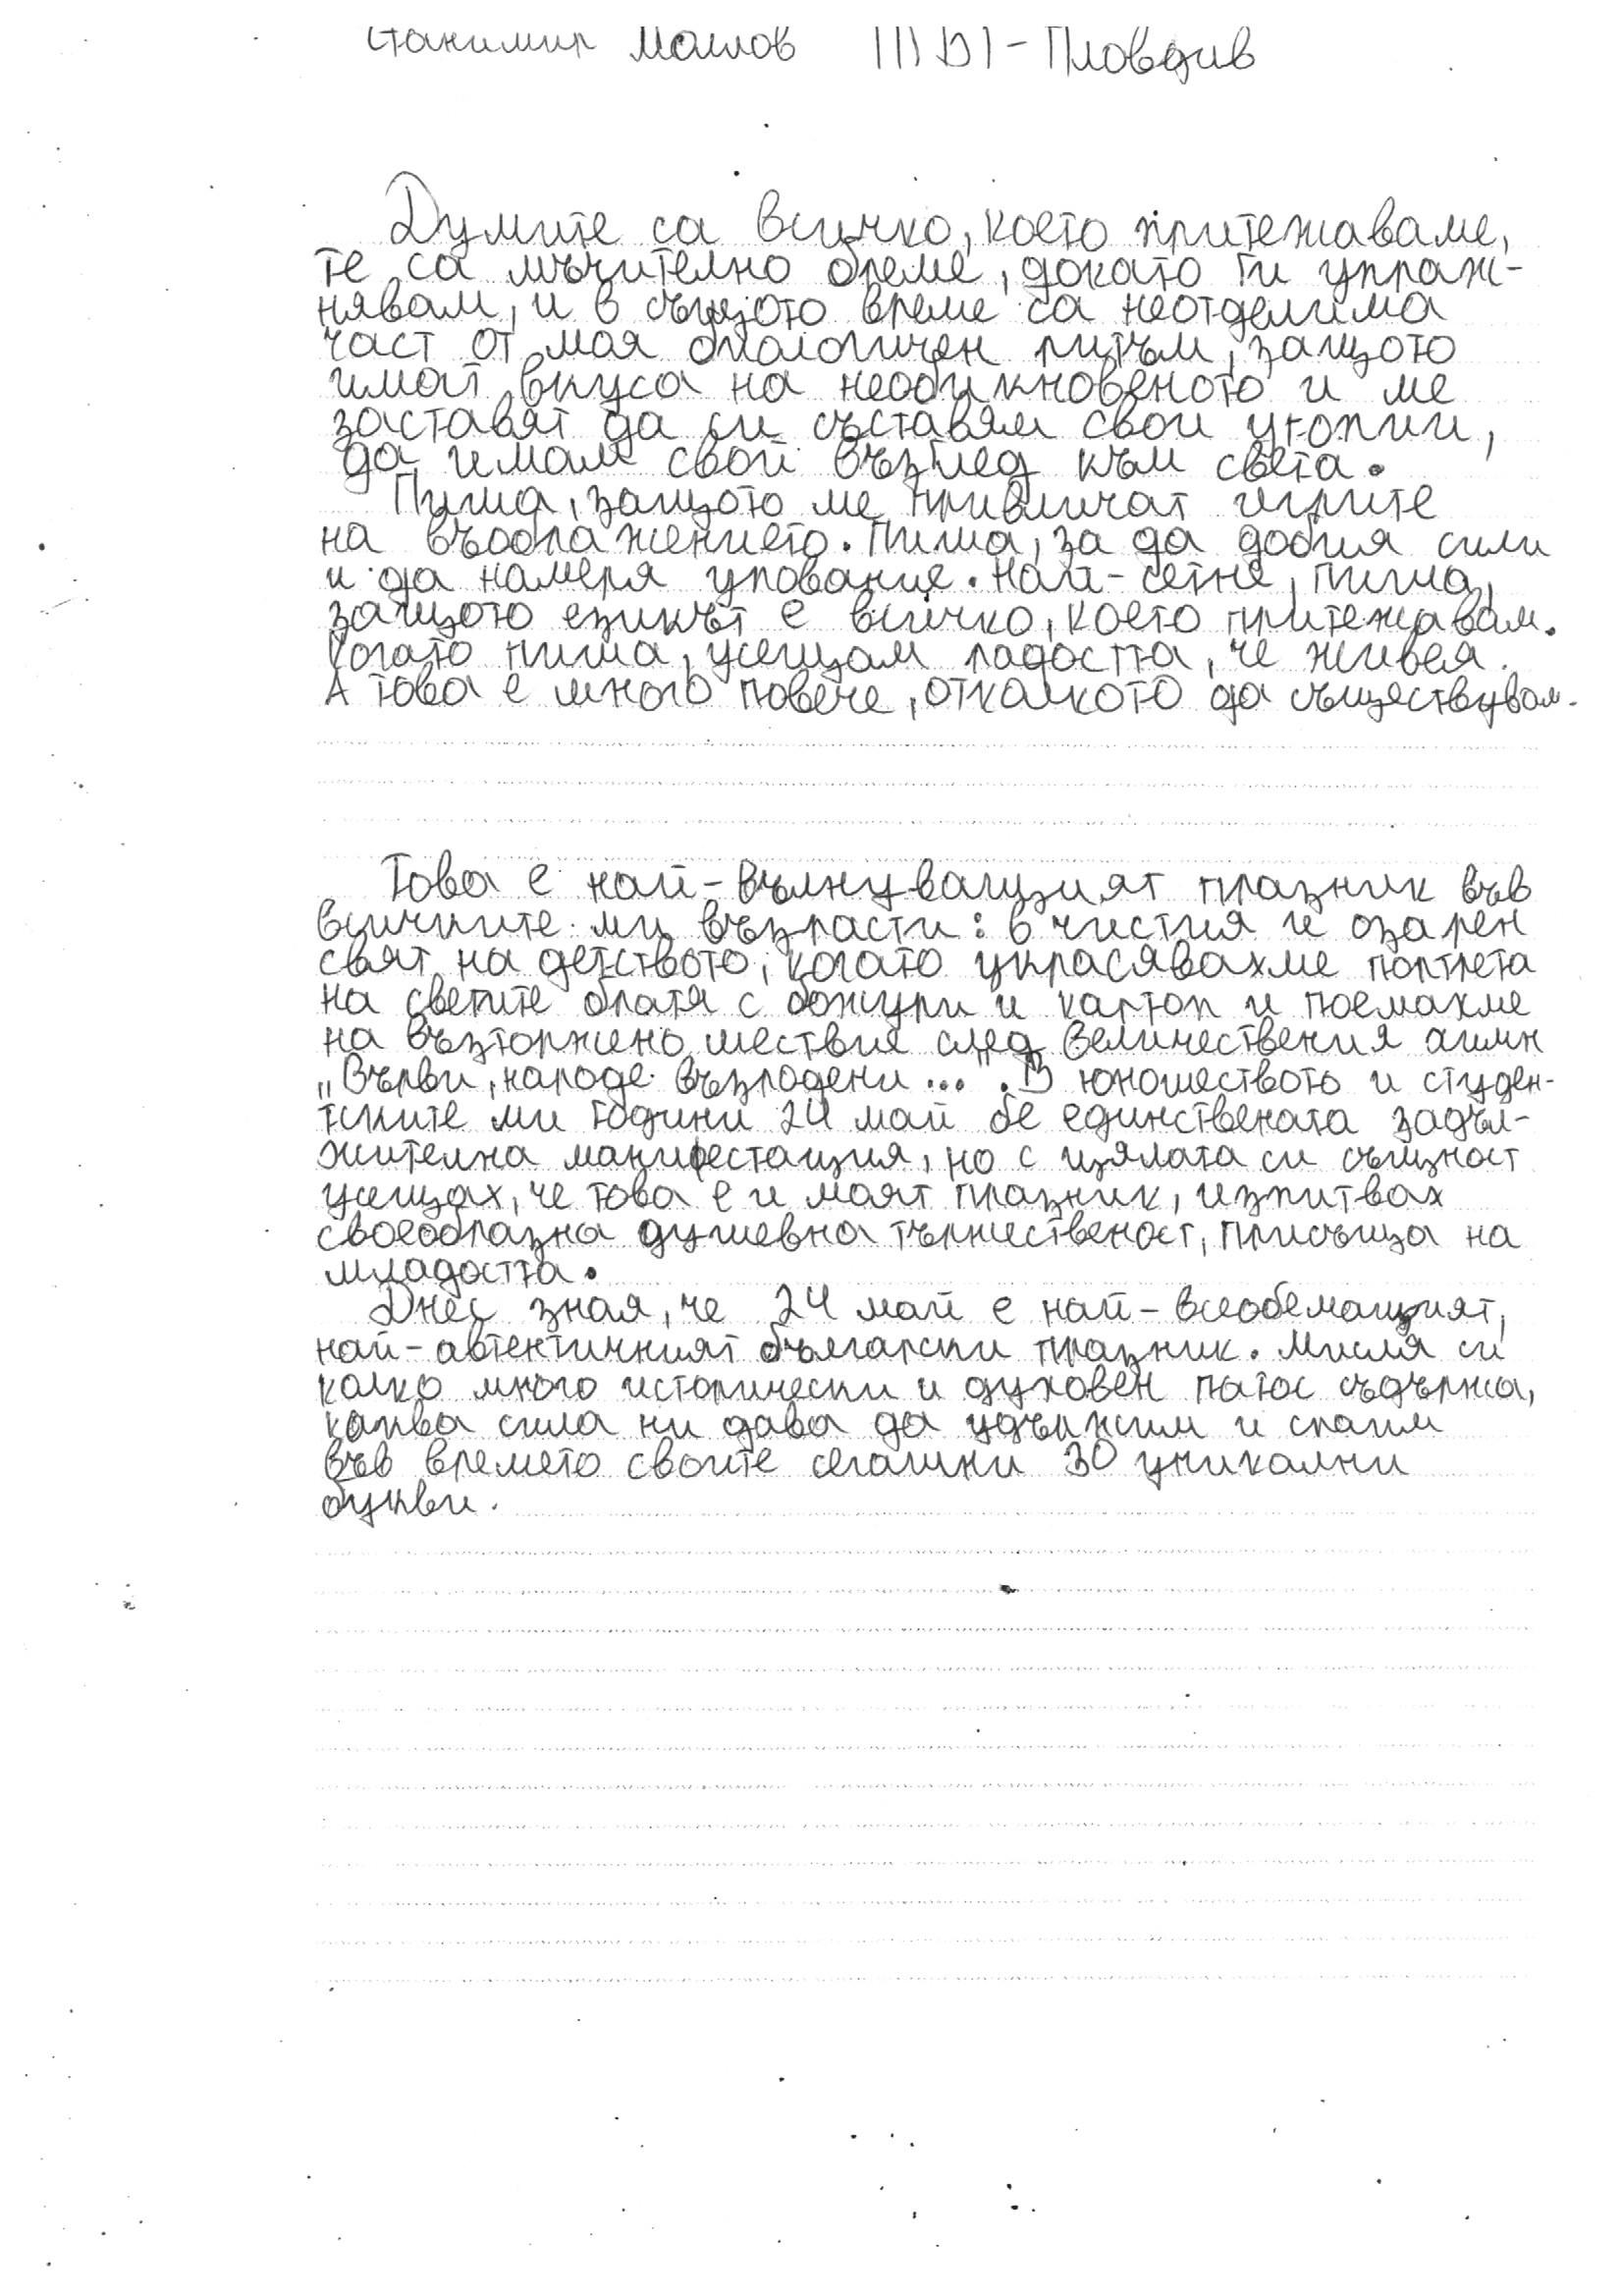 Станимир Маилов ПЛОВДИВ
Думите са всичко, което притежаваме,
те са мъчително бреме, докато ги упраж-
нявам, и в същото време са неотделима
част от моя биологичен ритъм, защото
имат вкуса на необикновеното и ме
заставят да си съставям свои утопии,
да имам свой възглед към света.
Пиша, защото ме привличат игрите
на въображението. Пиша, за да добия сили
и да намеря упование. Най-сетне, пиша,
защото езикът е всичко, което притежавам.
Когато пиша, усещам радостта, че живея.
А това е много повече, отколкото да съществувам.
Това е най-вълнуващият празник във
всичките ми възрасти: в чистия и озарен
свят на детството, когато украсявахме портрета
на светите братя с божури и картоп и поемахме
на възторжено шествие след величествения химн
„Върви, народе възродени...". В юношеството и студен-
тските ми години 24 май бе единствената задъл-
жителна манифестация, но с цялата си същност
усещах, че това е и моят празник, изпитвах
своеобразна душевна тържественост, присъща на
младостта.
Днес зная, че 24 май е най-всеобемащият,
най-автентичният български празник. Мисля си
колко много исторически и духовен патос съдържа,
каква сила ни дава да удържим и спазим
във времето своите сегашни 30 уникални
букви.